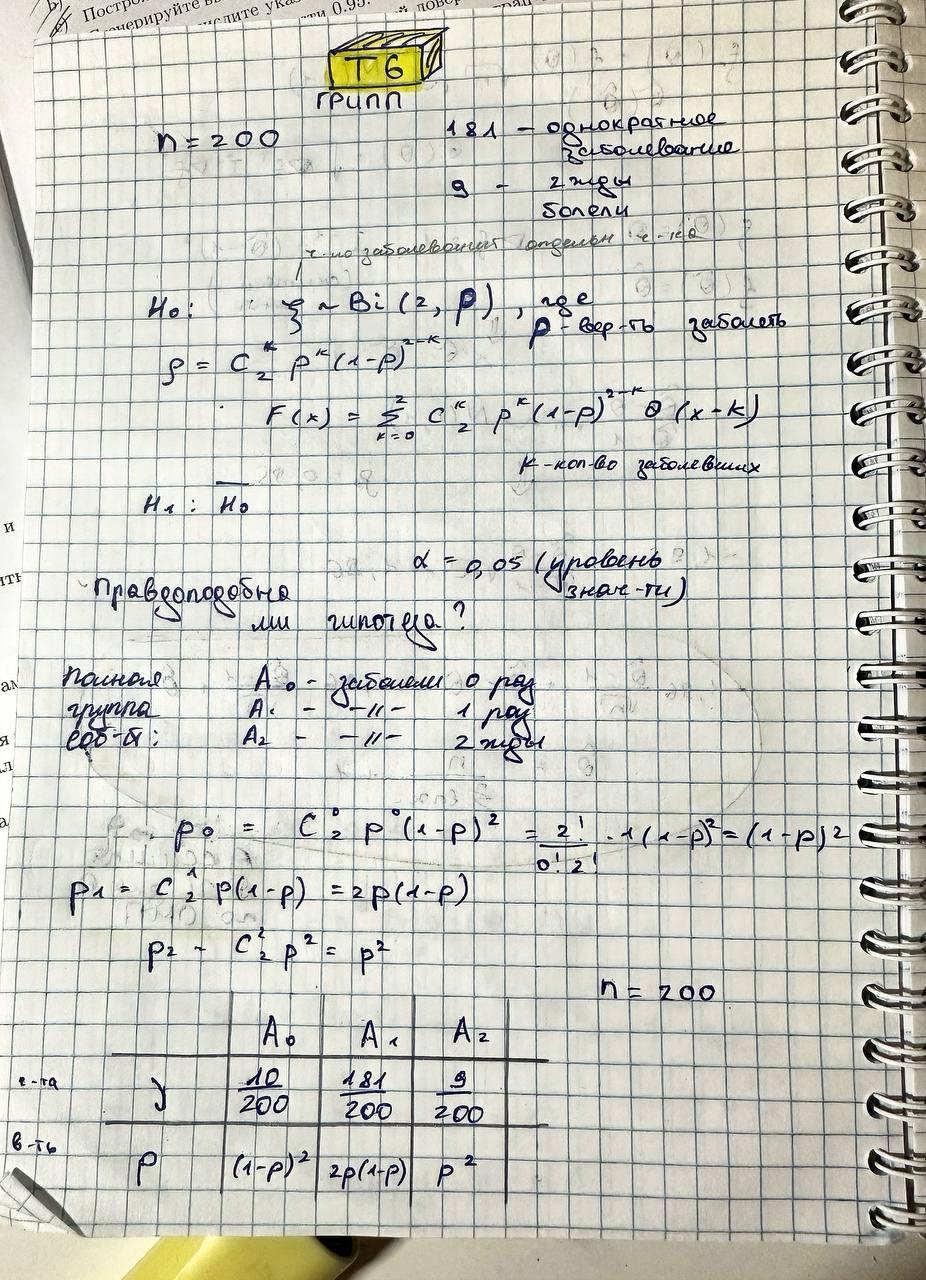 Постро
Сгенерируйте вы
числите ука
сти 0.95.
Т 6
ГРИПП
n = 200
181 - однократное заболевание
9 - 2жды болели
ч-ло заболеваний отдельн ч-ка
H₀: ξ ~ Bi (2, p), где
p - вер-ть заболеть
ρ = C₂ᵏ pᵏ (1-p)²⁻ᵏ
F(x) = Σ_{k=0}^{2} C₂ᵏ pᵏ (1-p)²⁻ᵏ θ (x-k)
k - кол-во заболевших
H₁: H̅₀
α = 0,05 (уровень
знач-ти)
Правдоподобна
ли гипотеза?
Полная A₀ - заболели 0 раз
группа A₁ - -"- 1 раз
соб-й: A₂ - -"- 2жды
p₀ = C₂⁰ p⁰ (1-p)² = 2!/(0! 2!) · 1 (1-p)² = (1-p)²
p₁ = C₂¹ p(1-p) = 2p(1-p)
p₂ - C₂² p² = p²
n = 200
A₀ A₁ A₂
ч-та ν 10/200 181/200 9/200
в-ть p (1-p)² 2p(1-p) p²